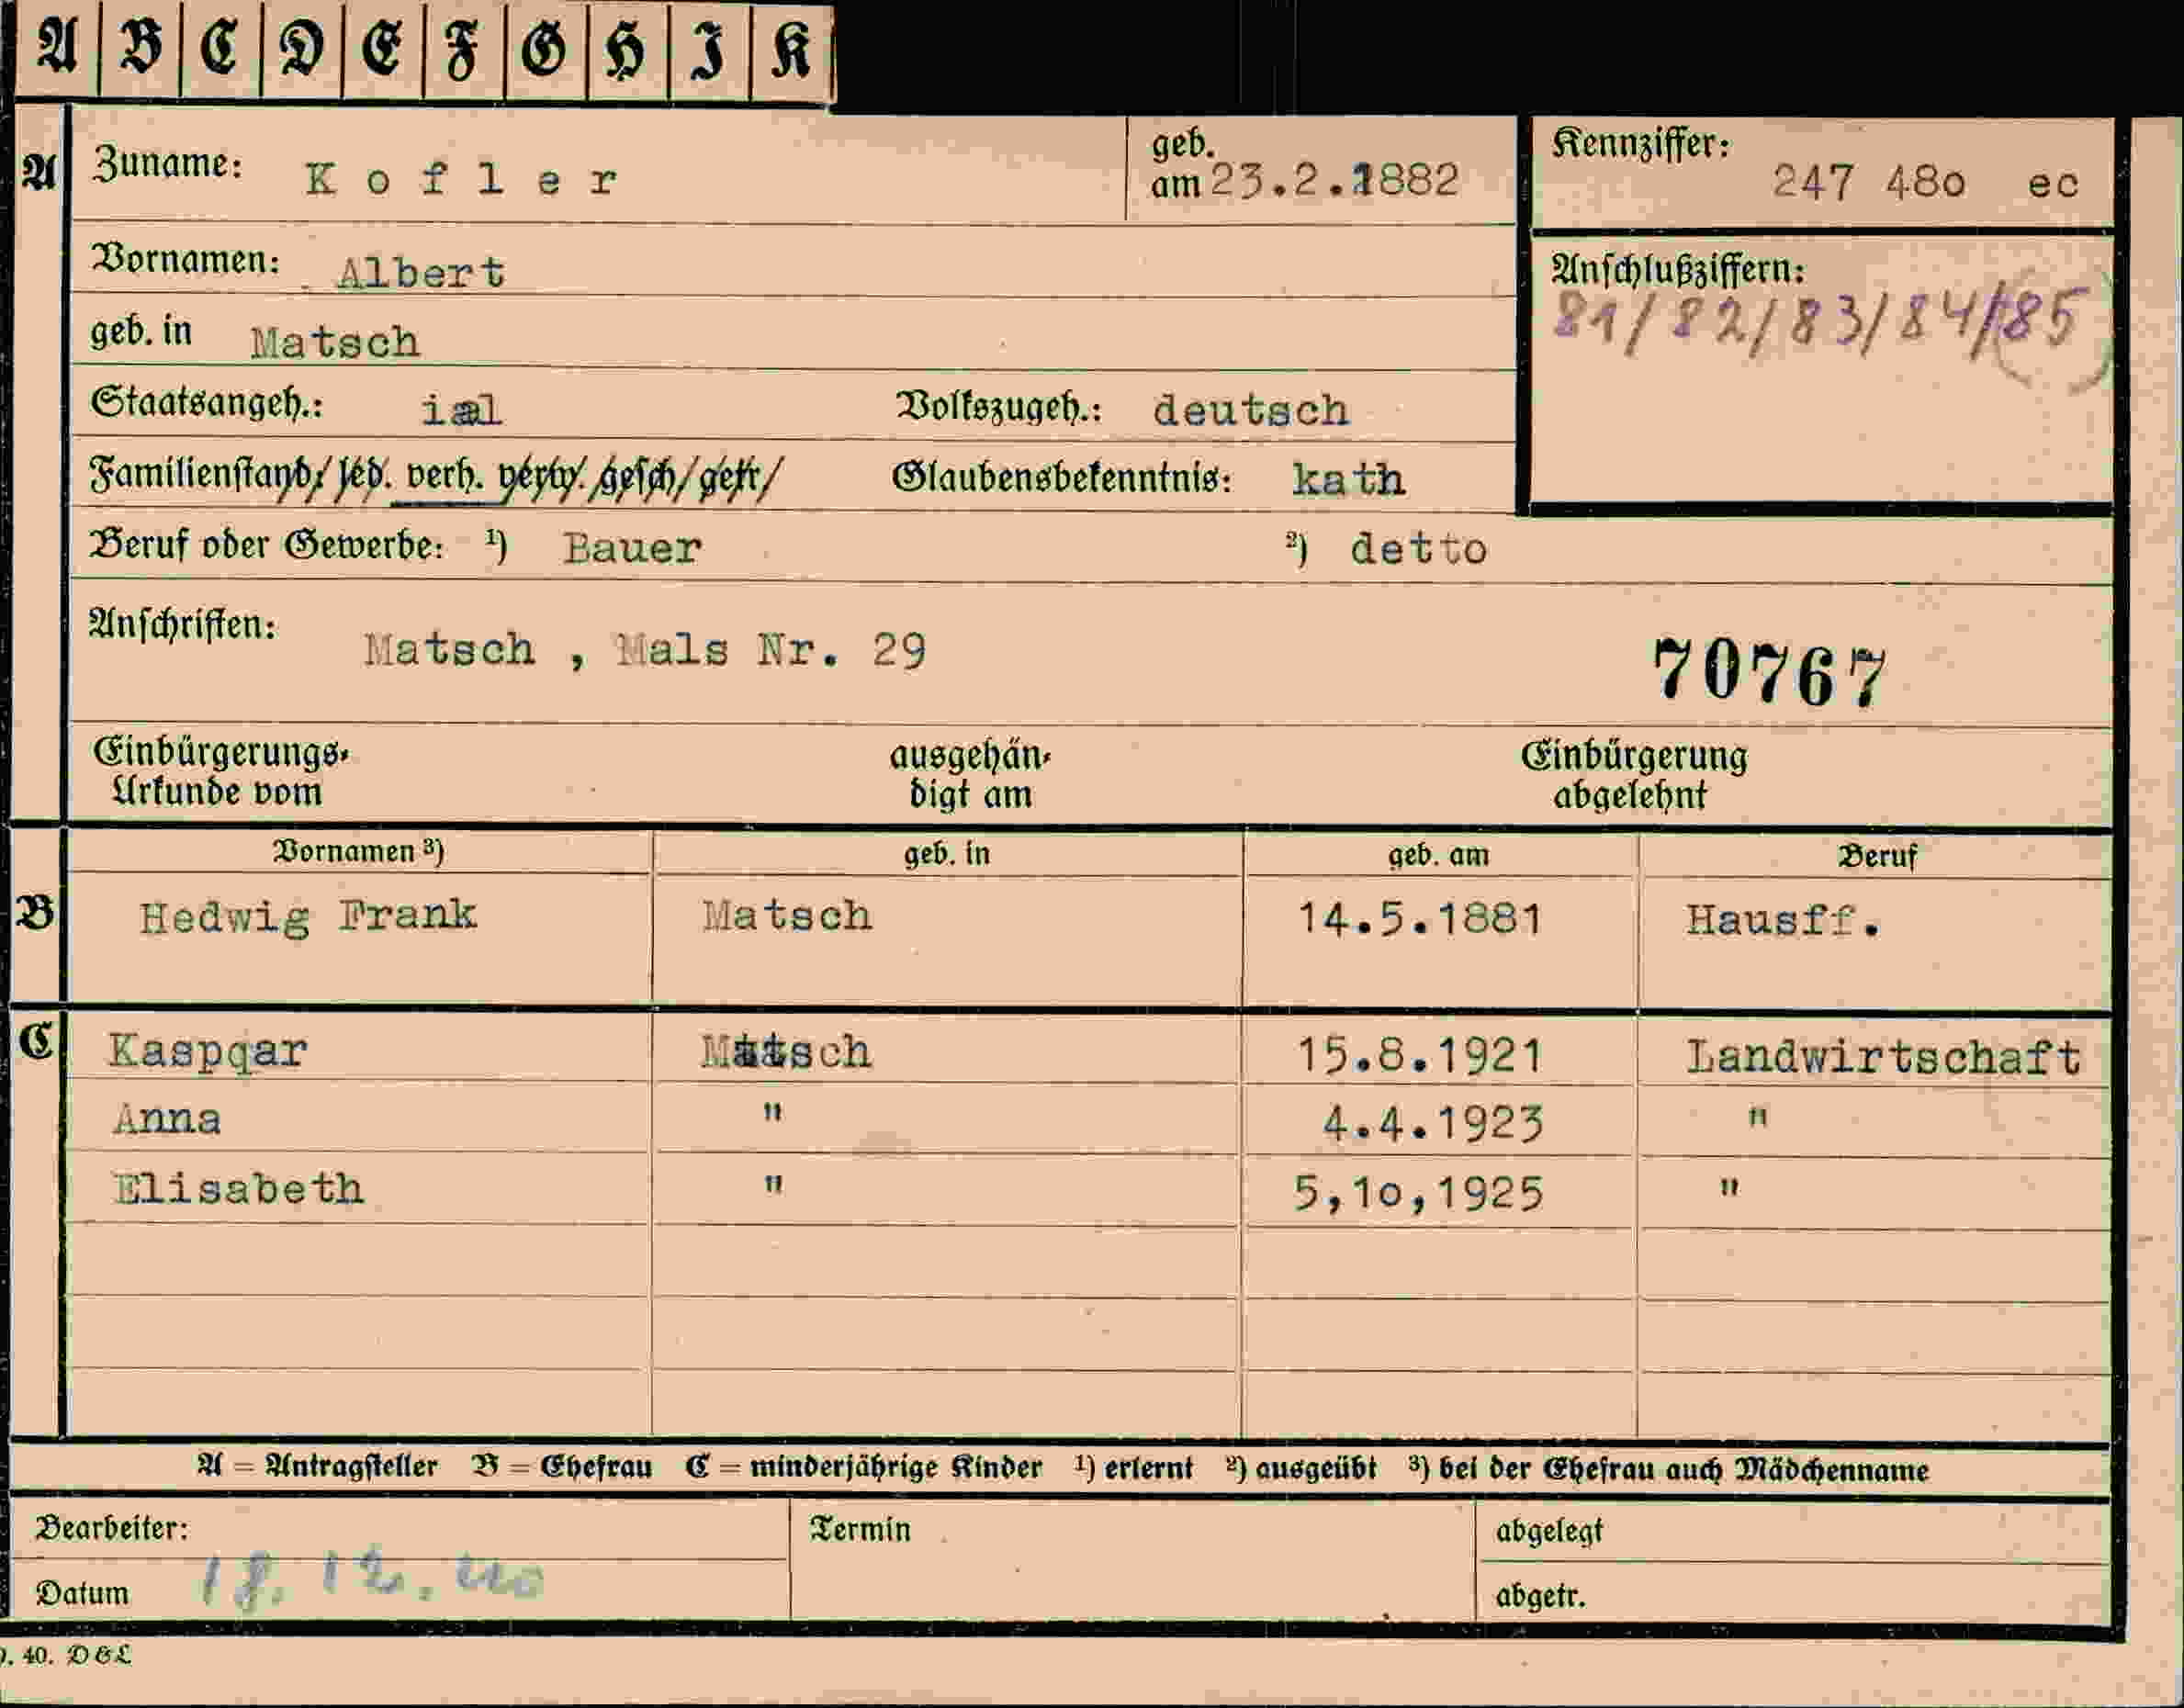 A B C D E F G H I K
A Zuname: Kofler geb. am 23.2.1882 Kennziffer: 247 480 ec
Vornamen: Albert
Anschlußziffern:
81/82/83/84/(85)
geb. in Matsch
Staatsangeh.: ial Volkszugeh.: deutsch
Familienstand/ led. verh. verw. gesch/ getr/ Glaubensbekenntnis: kath
Beruf oder Gewerbe: ¹) Bauer ²) detto
Anschriften: Matsch , Mals Nr. 29 70767
Einbürgerungs- ausgehän- Einbürgerung
Urkunde vom digt am abgelehnt
Vornamen ³) geb. in geb. am Beruf
B Hedwig Frank Matsch 14.5.1881 Hausff.
C Kaspqar Matsch 15.8.1921 Landwirtschaft
Anna " 4.4.1923 "
Elisabeth " 5,1o,1925 "
A = Antragsteller B = Ehefrau C = minderjährige Kinder ¹) erlernt ²) ausgeübt ³) bei der Ehefrau auch Mädchenname
Bearbeiter: Termin abgelegt
Datum 18.12.40 abgetr.
40. D&L